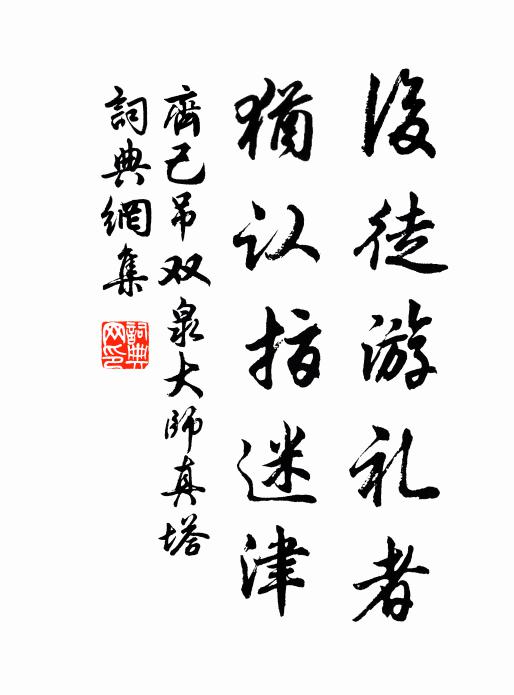 後徒游礼者
猶认指迷津
齊己吊双泉大師真塔
詞典網集
詞典
网印